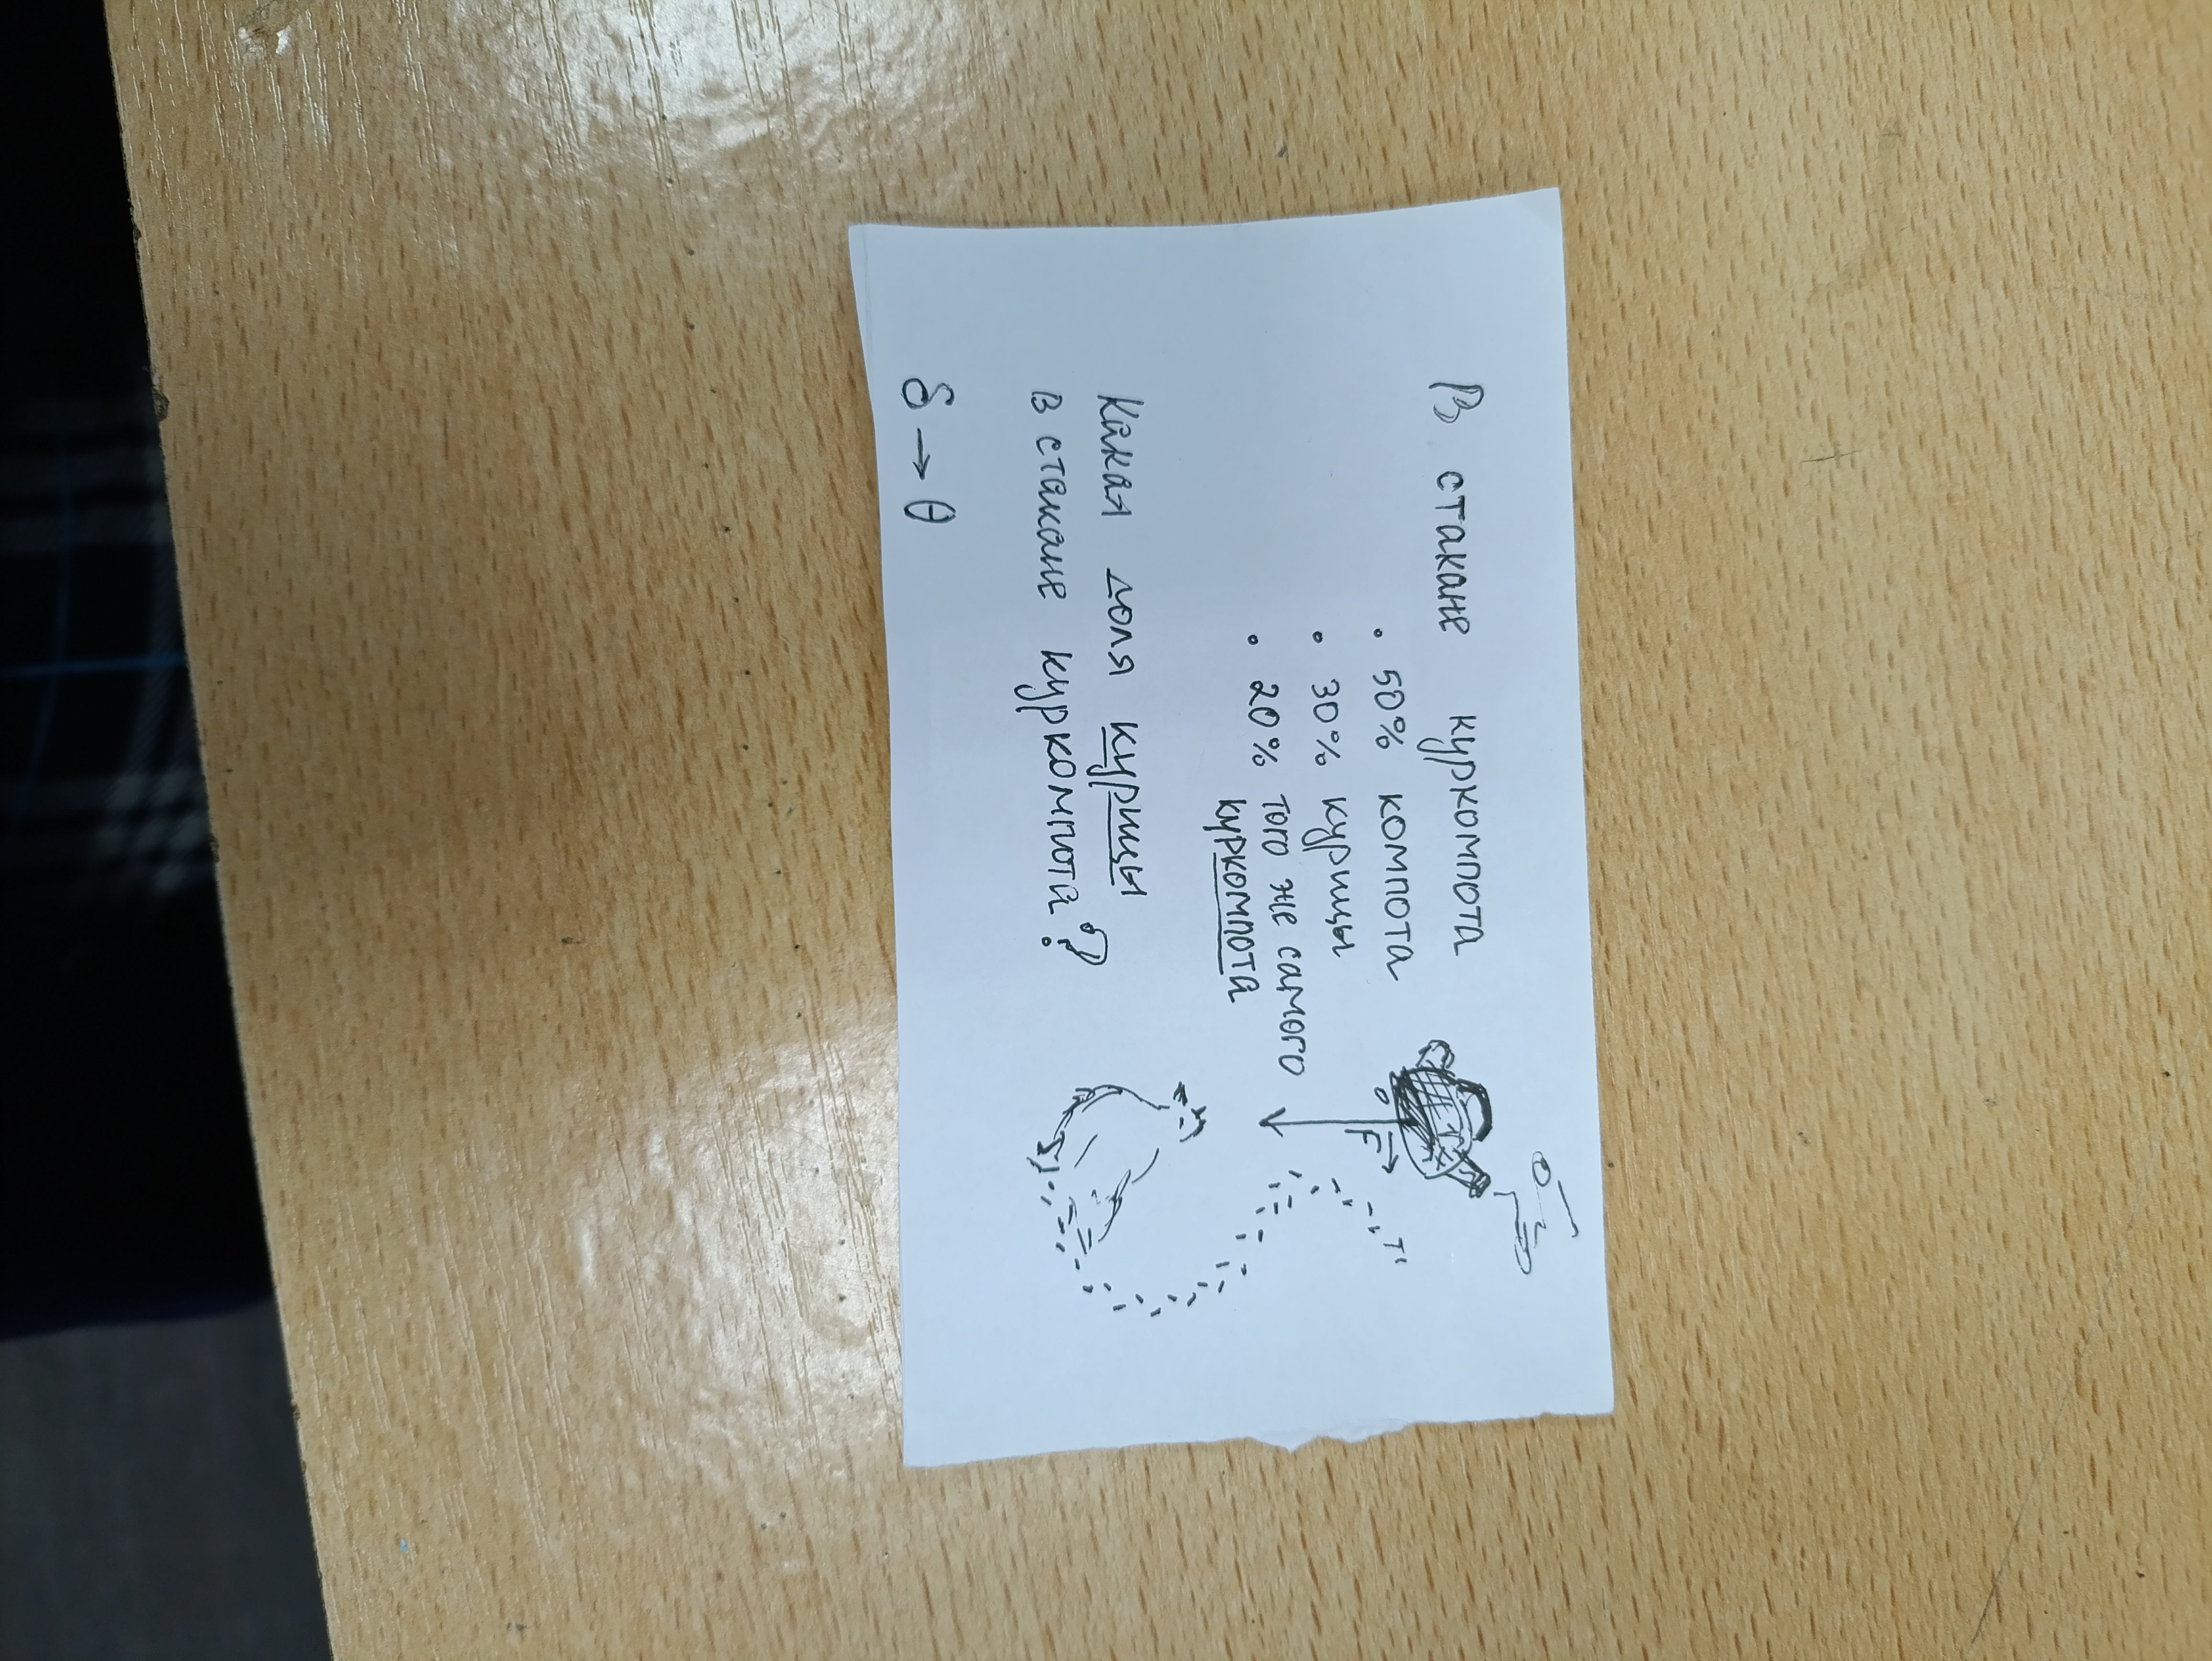 В стакане куркомпота
• 50% компота
• 30% курицы
• 20% того же самого
куркомпота
Какая доля курицы
в стакане куркомпота?
δ → θ
F